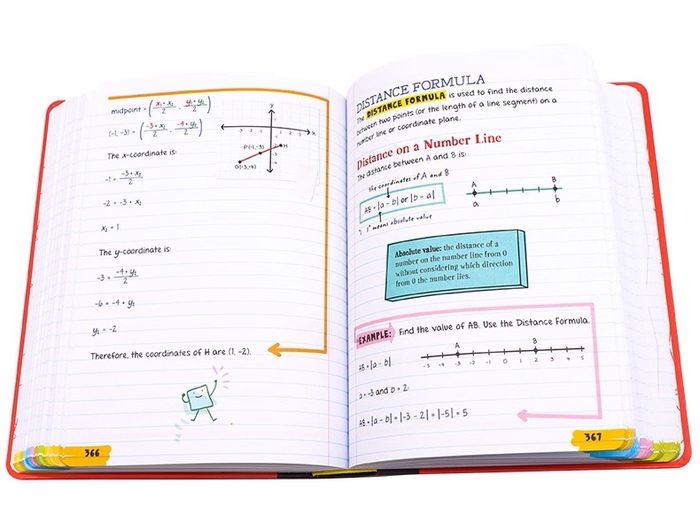 midpoint = (x₁ + x₂ / 2 , y₁ + y₂ / 2)
(-1, -3) = (-3 + x₂ / 2 , -4 + y₂ / 2)
y
x
P(-1,-3)
H
G(-3,-4)
The x-coordinate is:
-1 = -3 + x₂ / 2
-2 = -3 + x₂
x₂ = 1
The y-coordinate is:
-3 = -4 + y₂ / 2
-6 = -4 + y₂
y₂ = -2
Therefore, the coordinates of H are (1, -2).
366
DISTANCE FORMULA
The DISTANCE FORMULA is used to find the distance
between two points (or the length of a line segment) on a
number line or coordinate plane.
Distance on a Number Line
The distance between A and B is:
the coordinates of A and B
AB = |a - b| or |b - a|
"| |" means absolute value
A B
a b
Absolute value: the distance of a
number on the number line from 0
without considering which direction
from 0 the number lies.
EXAMPLE: Find the value of AB. Use the Distance Formula.
A B
-5 -4 -3 -2 -1 0 1 2 3 4 5
AB = |a - b|
a = -3 and b = 2:
AB = |a - b| = |-3 - 2| = |-5| = 5
367